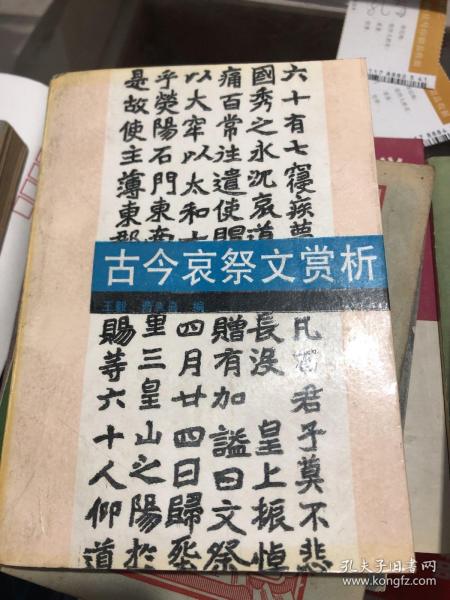 六十有七寢疾薨
國秀之永沉哀道
痛百常往遣使賵
以大窂以太和十
乎滎陽石門東南
是故使主薄東郡
古今哀祭文赏析
编
凡百君子莫不悲
長没 皇上振悼
贈有加 謚曰文祭
四月廿四日歸葬
里三皇山之陽於
賜等六十人仰道
孔夫子旧书网
www.kongfz.com